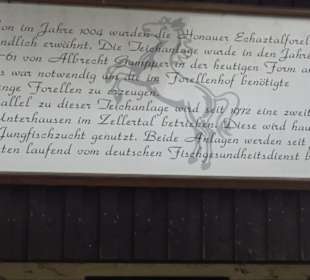 on im Jahre 1004 wurden die Honauer Echaztalforel
ndlich erwähnt. Die Teichanlage wurde in den Jahre
-61 von Albrecht Gumpper in der heutigen Form a
s war notwendig um die im Forellenhof benötigte
nge Forellen zu erzeugen.
allel zu dieser Teichanlage wird seit 1972 eine zweit
Unterhausen im Zellertal betrieben. Diese wird hau
Jungfischzucht genutzt. Beide Anlagen werden seit
ten laufend vom deutschen Fischgesundheitsdienst b